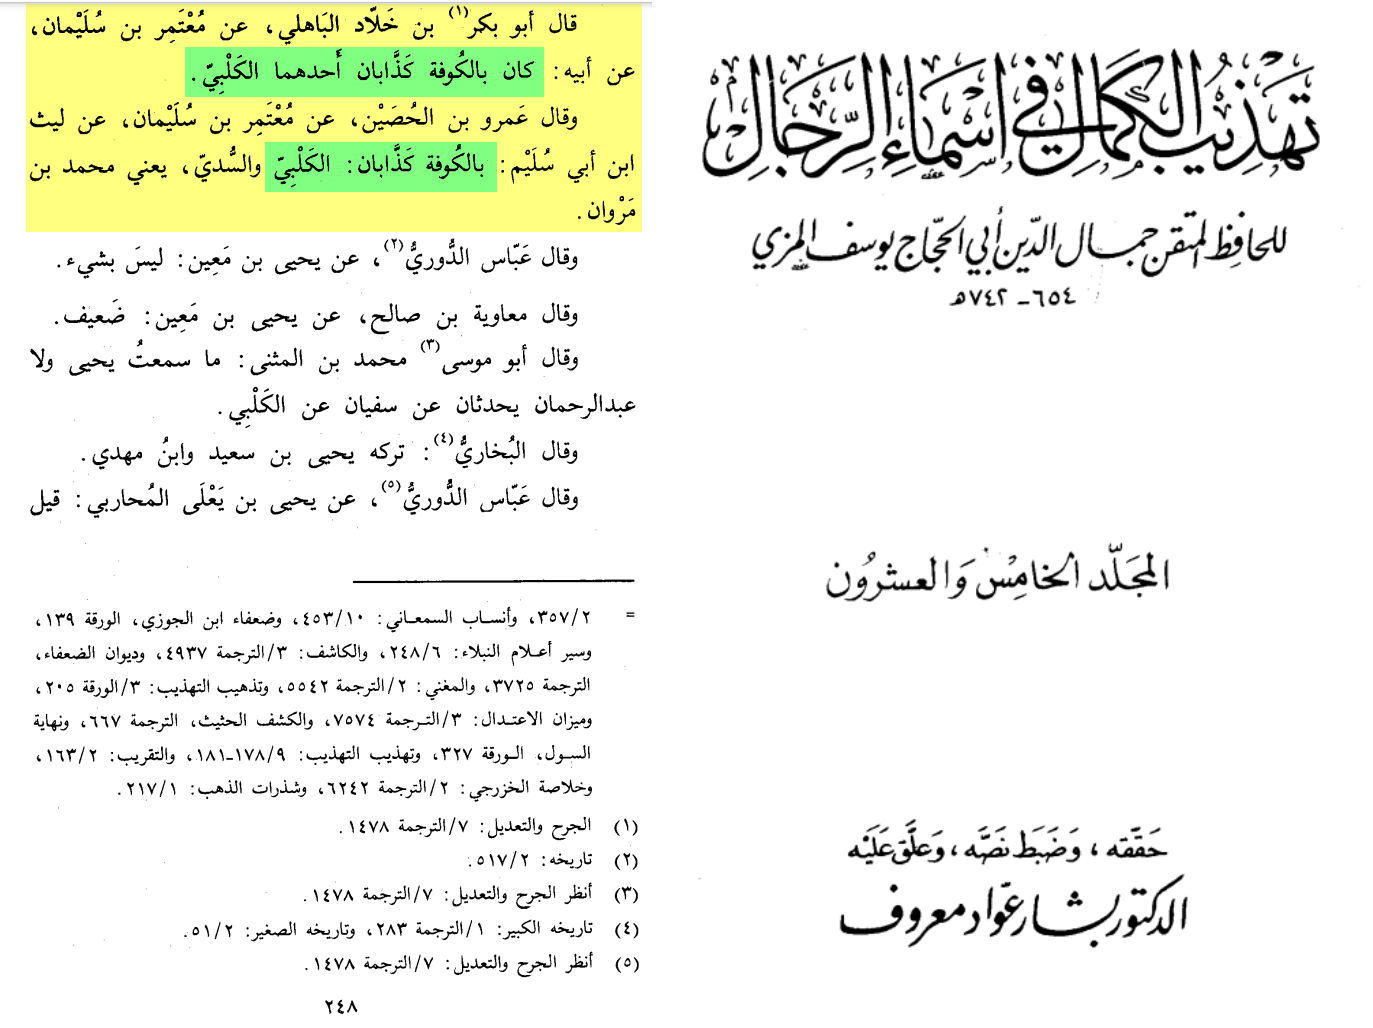 تهذيب الكمال في أسماء الرجال
للحافظ المتقن جمال الدين أبي الحجاج يوسف المزي
٦٥٤ - ٧٤٢هـ
المجلد الخامس والعشرون
حققه، وضبط نصه، وعلق عليه
الدكتور بشار عواد معروف
قال أبو بكر(١) بن خَلّاد البَاهلي، عن مُعْتَمِر بن سُلَيْمان،
عن أبيه: كان بالكُوفة كَذَّابان أَحدهما الكَلْبِيّ.
وقال عَمرو بن الحُصَيْن، عن مُعْتَمِر بن سُلَيْمان، عن ليث
ابن أبي سُلَيْم: بالكُوفة كَذَّابان: الكَلْبِيّ والسُّديّ، يعني محمد بن
مَرْوان.
وقال عَبّاس الدُّوريُّ(٢)، عن يحيى بن مَعِين: ليسَ بشيء.
وقال معاوية بن صالح، عن يحيى بن مَعِين: ضَعيف.
وقال أبو موسى(٣) محمد بن المثنى: ما سمعتُ يحيى ولا
عبدالرحمان يحدثان عن سفيان عن الكَلْبِي.
وقال البُخاريُّ(٤): تركه يحيى بن سعيد وابنُ مهدي.
وقال عَبّاس الدُّوريُّ(٥)، عن يحيى بن يَعْلَى المُحاربي: قيل
= ٣٥٧/٢، وأنساب السمعاني: ٤٥٣/١٠، وضعفاء ابن الجوزي، الورقة ١٣٩،
وسير أعلام النبلاء: ٢٤٨/٦، والكاشف: ٣/الترجمة ٤٩٣٧، وديوان الضعفاء،
الترجمة ٣٧٢٥، والمغني: ٢/الترجمة ٥٥٤٢، وتذهيب التهذيب: ٣/الورقة ٢٠٥،
وميزان الاعتدال: ٣/الترجمة ٧٥٧٤، والكشف الحثيث، الترجمة ٦٦٧، ونهاية
السول، الورقة ٣٢٧، وتهذيب التهذيب: ١٧٨/٩-١٨١، والتقريب: ١٦٣/٢،
وخلاصة الخزرجي: ٢/الترجمة ٦٢٤٢، وشذرات الذهب: ٢١٧/١.
(١) الجرح والتعديل: ٧/الترجمة ١٤٧٨.
(٢) تاريخه: ٥١٧/٢.
(٣) أنظر الجرح والتعديل: ٧/الترجمة ١٤٧٨.
(٤) تاريخه الكبير: ١/الترجمة ٢٨٣، وتاريخه الصغير: ٥١/٢.
(٥) أنظر الجرح والتعديل: ٧/الترجمة ١٤٧٨.
٢٤٨